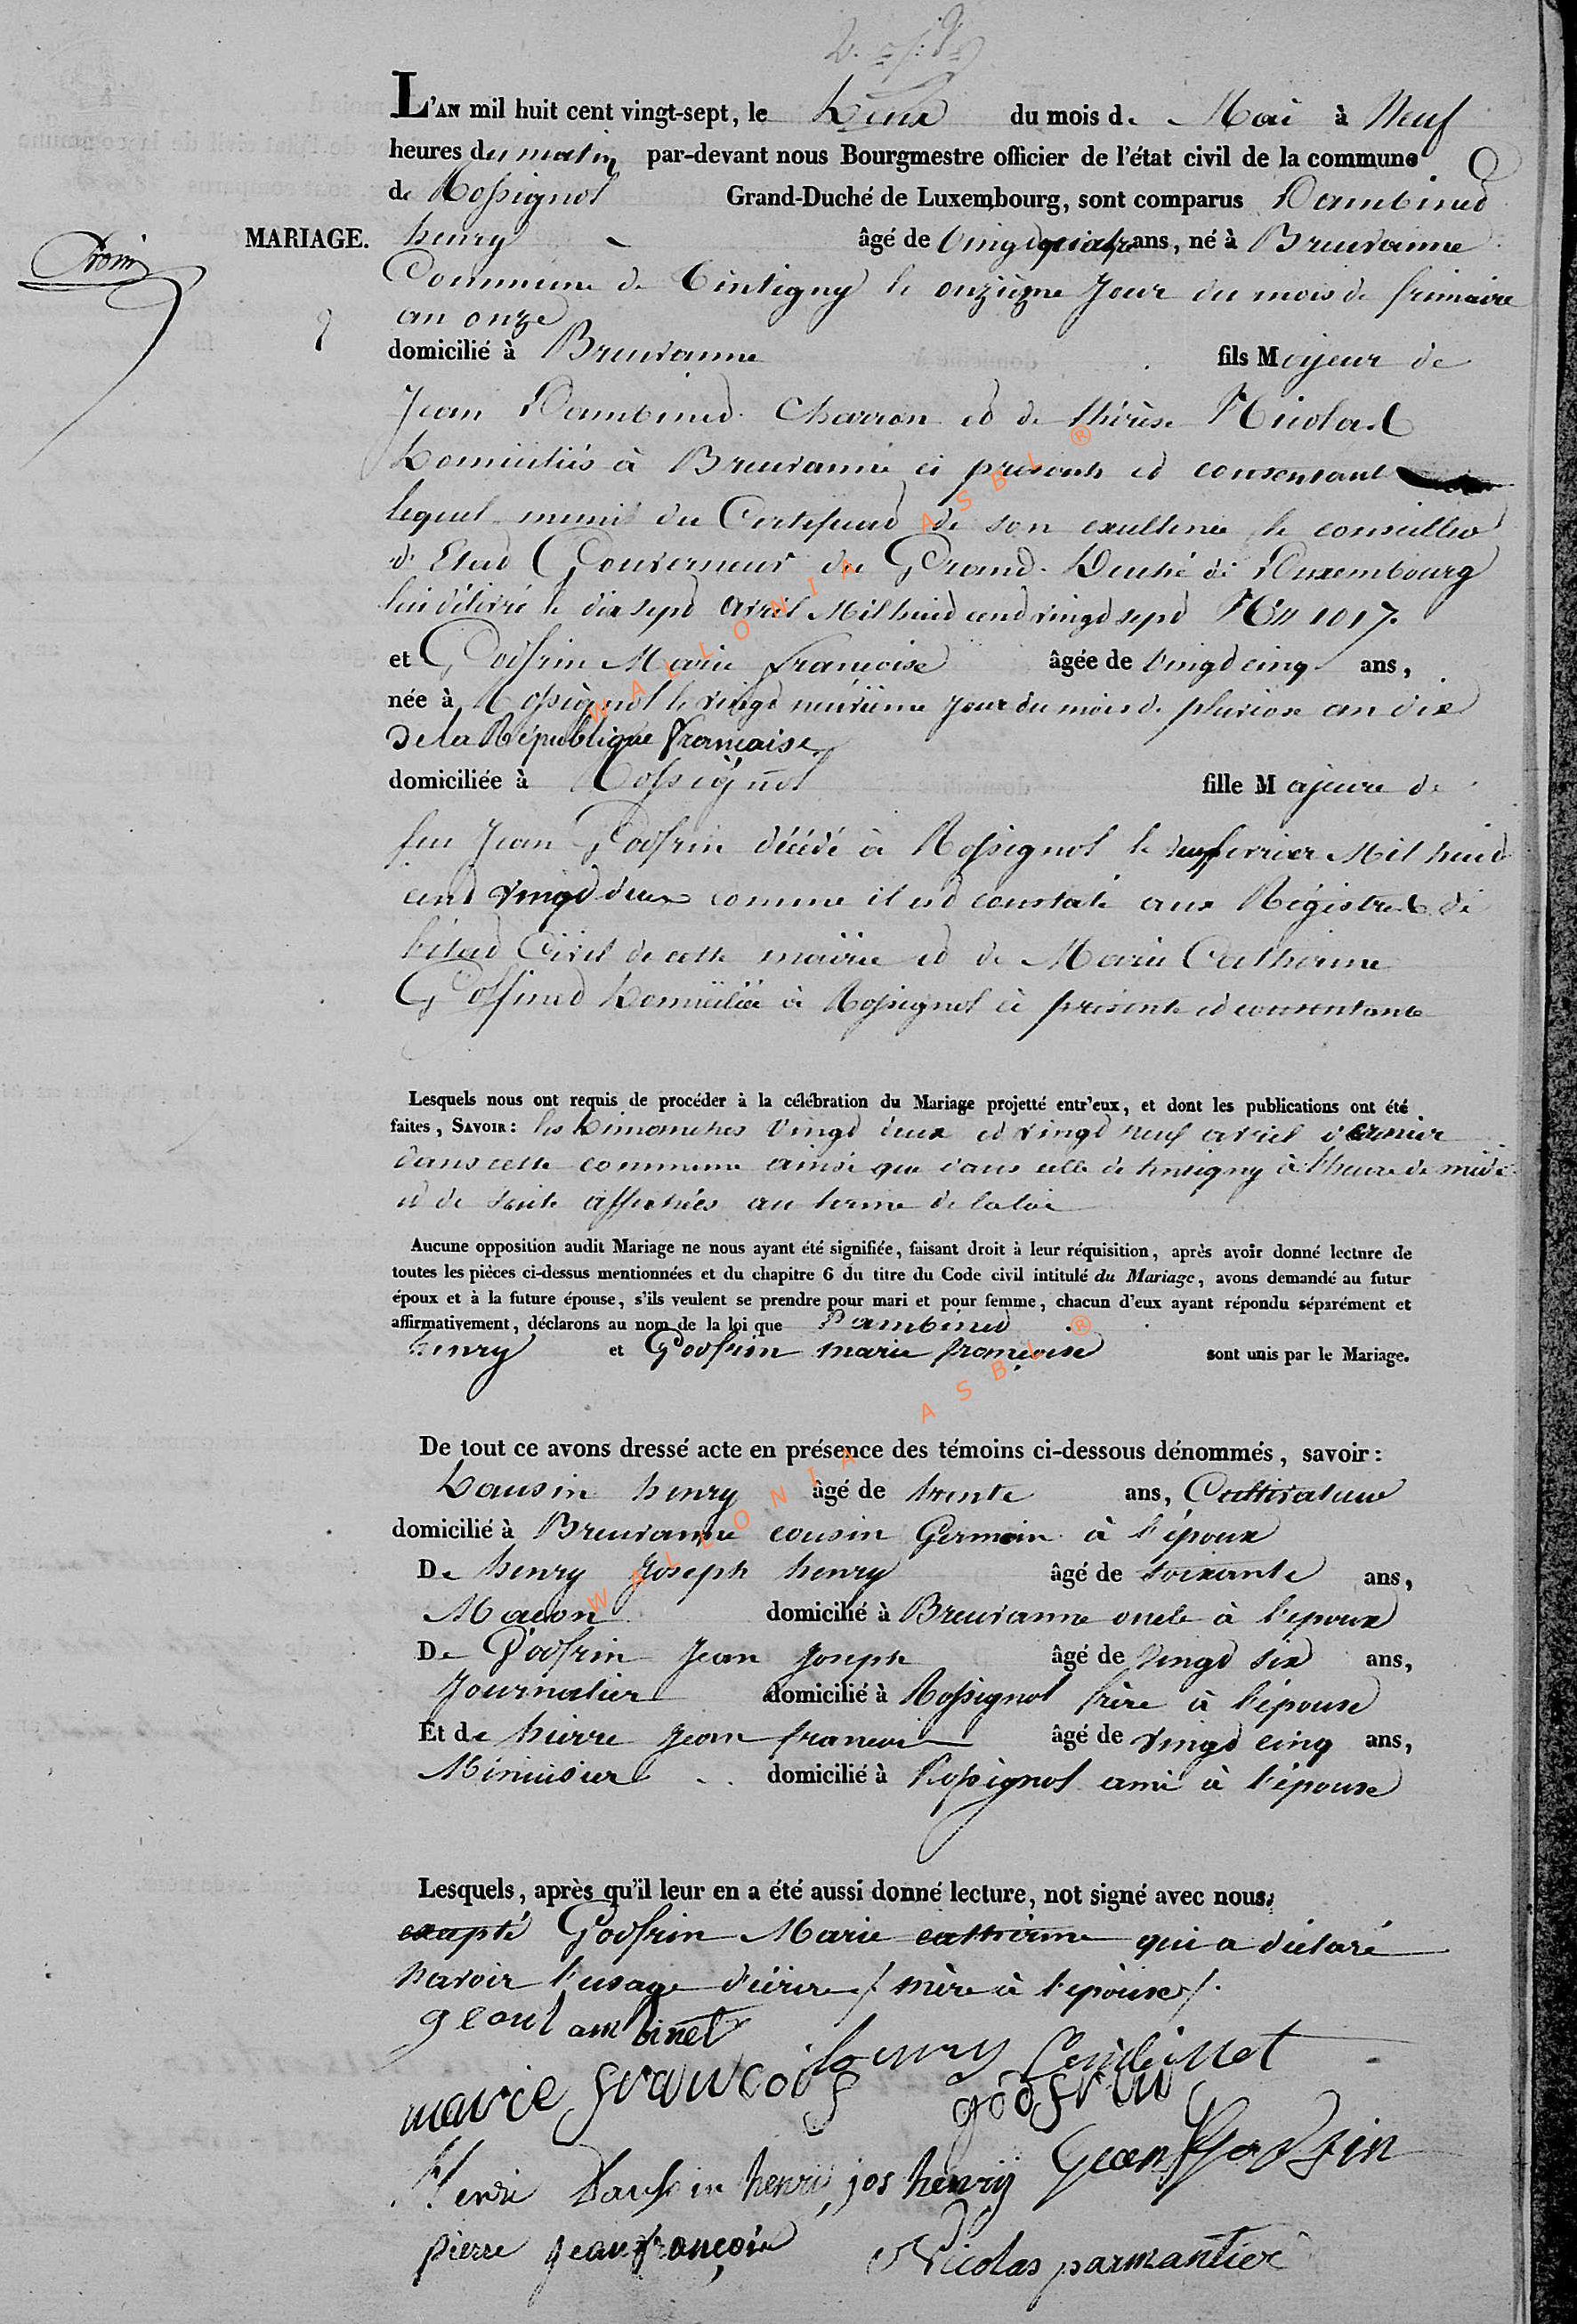 L'AN mil huit cent vingt-sept, le Deux du mois de Mai à Neuf
heures du matin par-devant nous Bourgmestre officier de l'état civil de la commune
de Rossignol Grand-Duché de Luxembourg, sont comparus Lambinet
MARIAGE. henry âgé de vingt quatre ans, né à Breuvanne
Commune de Tintigny le onzième Jour du mois de frimaire
an onze
domicilié à Breuvanne fils Majeur de
Jean Lambinet Charron et de thérèse Nicolas
Domiciliés à Breuvanne ci présents et consentant
lequel muni du Certificat de son exellence le conseiller
d'Etat Gouverneur du Grand-Duché de Luxembourg
lui délivré le dix sept Avril Mil huit cent vingt sept No 1017.
et Godfrin Marie françoise âgée de vingt cinq ans,
née à Rossignol le vingt neuvième jour du mois de pluviose an dix
De la République française
domiciliée à Rossignol fille Majeure de
feu Jean Godfrin décédé à Rossignol le fevrier Mil huit
cent vingt deux comme il est constaté aux Régistres de
l'état Civil de cette mairie et de Marie Catherine
Goffinet Domiciliée à Rossignol ci présente et consentante
Lesquels nous ont requis de procéder à la célébration du Mariage projetté entr'eux, et dont les publications ont été
faites, SAVOIR: les Dimanches vingt deux et vingt neuf avril dernier
dans cette commune ainsi que dans celle de tintigny à l'heure de midi
et de suite affichées au terme de la loi
Aucune opposition audit Mariage ne nous ayant été signifiée, faisant droit à leur réquisition, après avoir donné lecture de
toutes les pièces ci-dessus mentionnées et du chapitre 6 du titre du Code civil intitulé du Mariage, avons demandé au futur
époux et à la future épouse, s'ils veulent se prendre pour mari et pour femme, chacun d'eux ayant répondu séparément et
affirmativement, déclarons au nom de la loi que Lambinet
henry et Godfrin marie françoise sont unis par le Mariage.
De tout ce avons dressé acte en présence des témoins ci-dessous dénommés, savoir:
Dausin henry âgé de trente ans, Cultivateur
domicilié à Breuvanne cousin Germain à l'époux
De henry Joseph henry âgé de soixante ans,
Macon domicilié à Breuvanne oncle à l'epoux
De Godfrin Jean Joseph âgé de vingt six ans,
Journalier domicilié à Rossignol frère à l'épouse
Et de Jean françois âgé de vingt cinq ans,
Ménuisier domicilié à Rossignol ami à l'épouse
Lesquels, après qu'il leur en a été aussi donné lecture, nt signé avec nous,
excepté Godfrin Marie catherine qui a déclaré
navoir l'usage d'écrire / mère à l'épouse /.
lambinet
henry Lambinet
marie françois godfrin
Henri Dausin henri jos henrij Jean Godfrin
pierre jean françois Nicolas parmantier
WALLONIA ASBL ®
WALLONIA ASBL ®